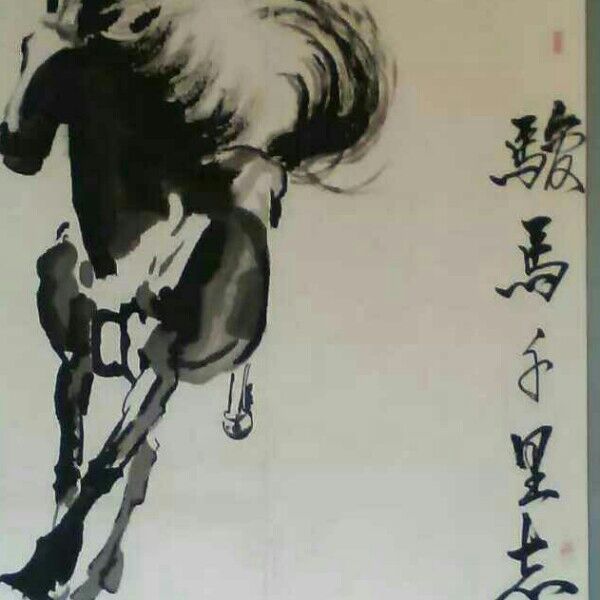 駿馬千里志